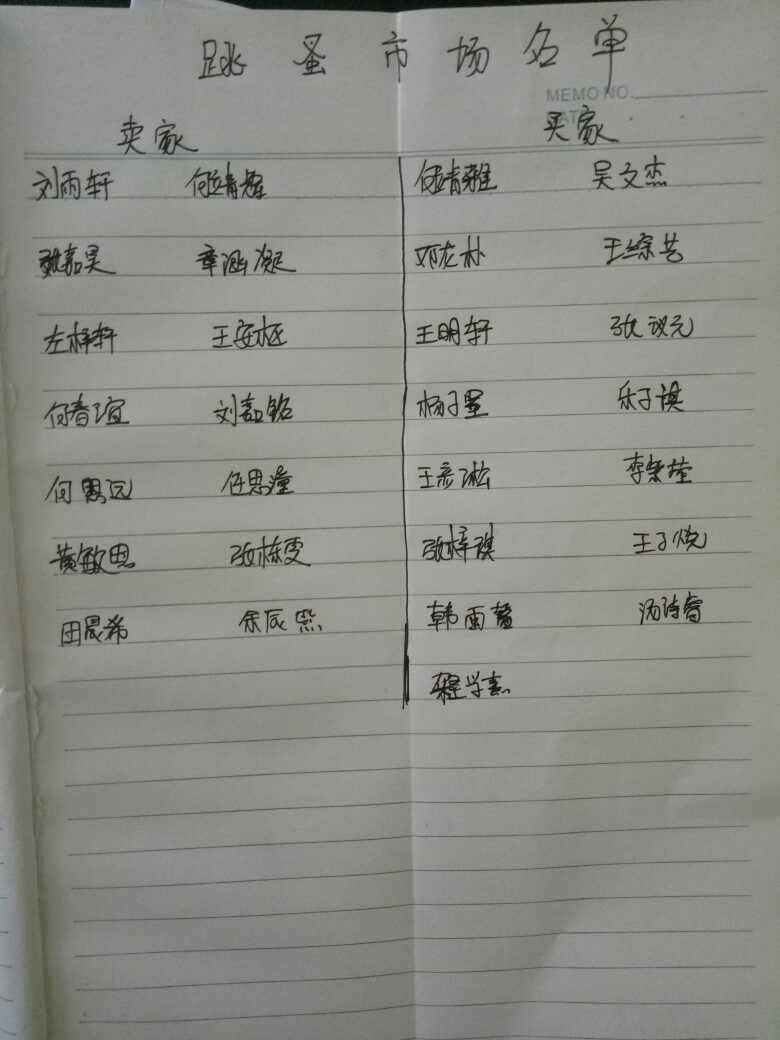 跳蚤市场名单
MEMO NO.
卖家 买家
刘雨轩 何靖耀 何靖雅 吴文杰
张嘉昊 章涵凝 邓龙朴 王综艺
左梓轩 王安 王明轩 张议元
何春谊 刘嘉铭 杨子墨 乐子淇
何思远 任思潼 王彦淞 李紫莹
黄敏思 张栋雯 张梓琪 王子悦
田晨希 余辰熙 韩雨馨 汤诗睿
程学熹